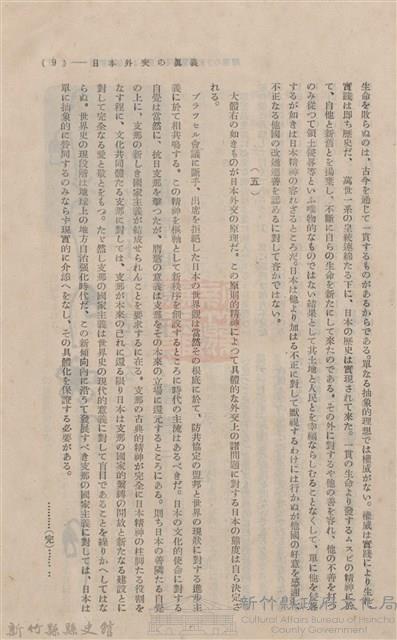 日本外交の眞義――(9)
生命を敗らぬのは、古今を通じて一貫するものがあるからである。單なる抽象的理想では權威がない。權威は實踐により生じ、
實踐は即ち歷史だ。萬世一系の皇統連綿たる下に、日本の歷史は實現されて來た。一貫の生命より發するムスビの精神に於
て、自他と新舊とを揚棄し、不斷に自らの生命を新たにして來たのである。その外に對するや他の善を容れ、他の不善を打つ
のみ從つて領土侵畧等といふ唯物的なものではない結果として其土地と人民とを幸福ならしむることなくして、單に他を侵
するが如きは日本精神の容れざるところだ。日本は他より加はる不正に對して默視するわけには行かぬが他國の好意を感謝し
不正なる他國の改過遷善を認めるに對して吝かではない。
(五)
大體右の如きものが日本外交の原理だ。この原則的精神によつて具體的な外交上の諸問題に對する日本の態度は自ら決定さ
れる。
ブラツセル會議に斷乎、出席を拒絕した日本の世界觀は當然その根底に於て、防共協協の盟邦と世界の現狀に對する進步主
義に於て相共鳴する。この精神を樞軸として新秩序を創設するところに時代の主流はあるべきだ。日本の文化的使命に對する
自覺は當然に、抗日支那を擊つたが、膺懲の意義は支那をその本來の立場に還元するところにある。則ち日本の善隣たる自覺
の上に、支那の新しき國家主義が結成せられんことを要求するに在る。支那の古典的精神が完全に日本精神の柱脚たる役割を
なす程に、文化共同體たる支那に對しては、支那が本來の己れに還る限り日本は支那の國家的羈絆の開放と新たなる建設とに
對して完全なる愛と敬とをもつ。たゞ然し支那の國家主義は世界史の現代的意義に對して盲目であることを繰りかへしてはな
らぬ。世界史の現段階は地球上の地方自治强化時代だ。この新傾向內に沿うて發展すべき支那の國家主義に對しては、日本は
單に抽象的に贊同するのみならず現實的に介添へをなし、その具體化を保證する必要がある。
………(完)……
新竹縣縣史館
新竹縣政府文化局
Cultural Affairs Bureau of Hsinchu
County Government